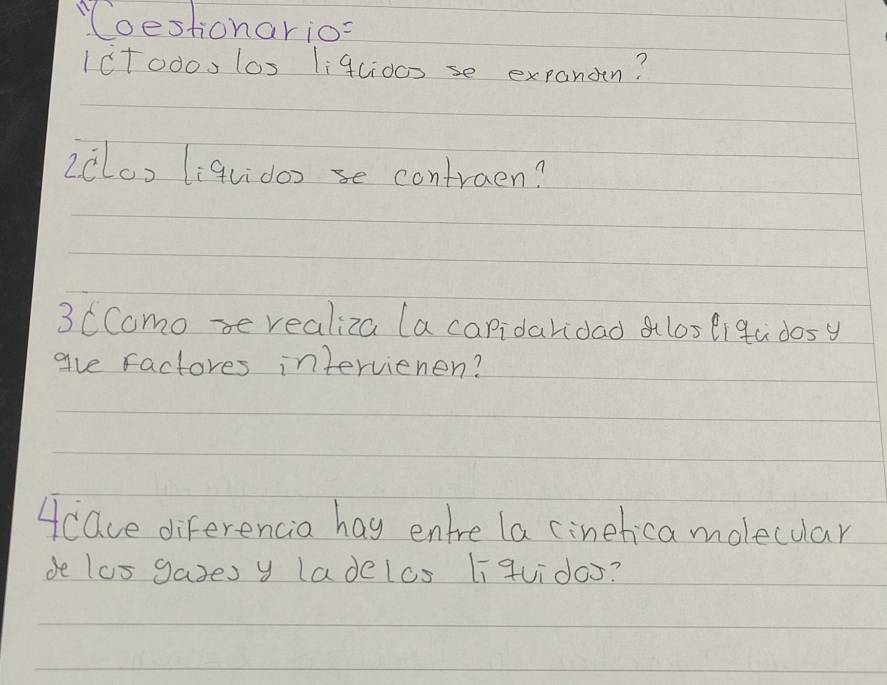 "Coestionario=
1¿Todos los liquidos se expanden?
2¿Los liquidos se contraen?
3¿Como se realiza la capidaridad de los liquidos y
que Factores intervienen?
4¿Que diferencia hay entre la cinetica molecular
de los gases y la de los liquidos?